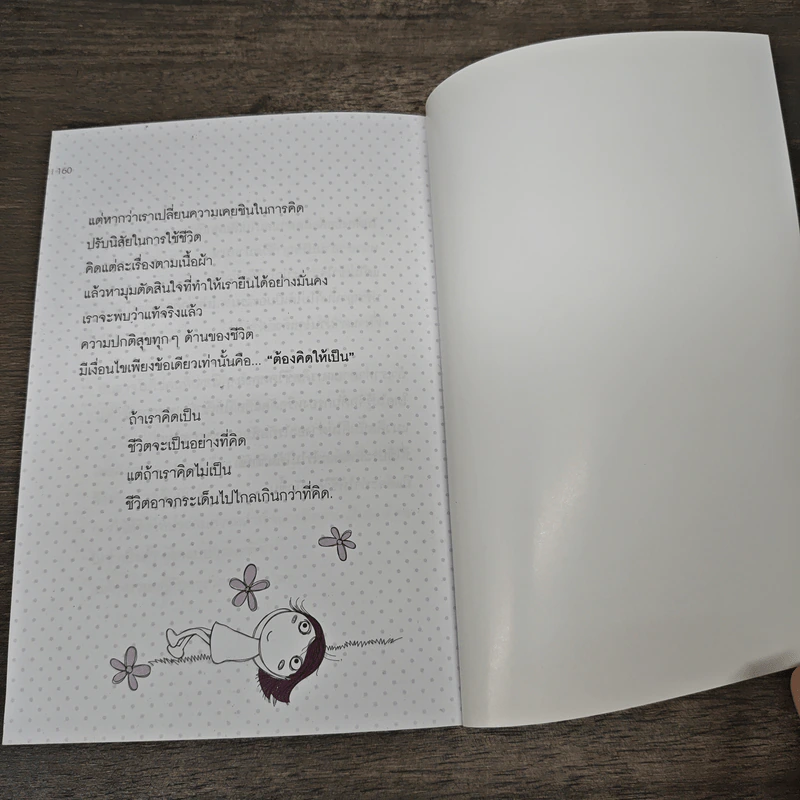 160
แต่หากว่าเราเปลี่ยนความเคยชินในการคิด
ปรับนิสัยในการใช้ชีวิต
คิดแต่ละเรื่องตามเนื้อผ้า
แล้วหามุมตัดสินใจที่ทำให้เรายืนได้อย่างมั่นคง
เราจะพบว่าแท้จริงแล้ว
ความปกติสุขทุกๆ ด้านของชีวิต
มีเงื่อนไขเพียงข้อเดียวเท่านั้นคือ... “ต้องคิดให้เป็น”
ถ้าเราคิดเป็น
ชีวิตจะเป็นอย่างที่คิด
แต่ถ้าเราคิดไม่เป็น
ชีวิตอาจกระเด็นไปไกลเกินกว่าที่คิด.